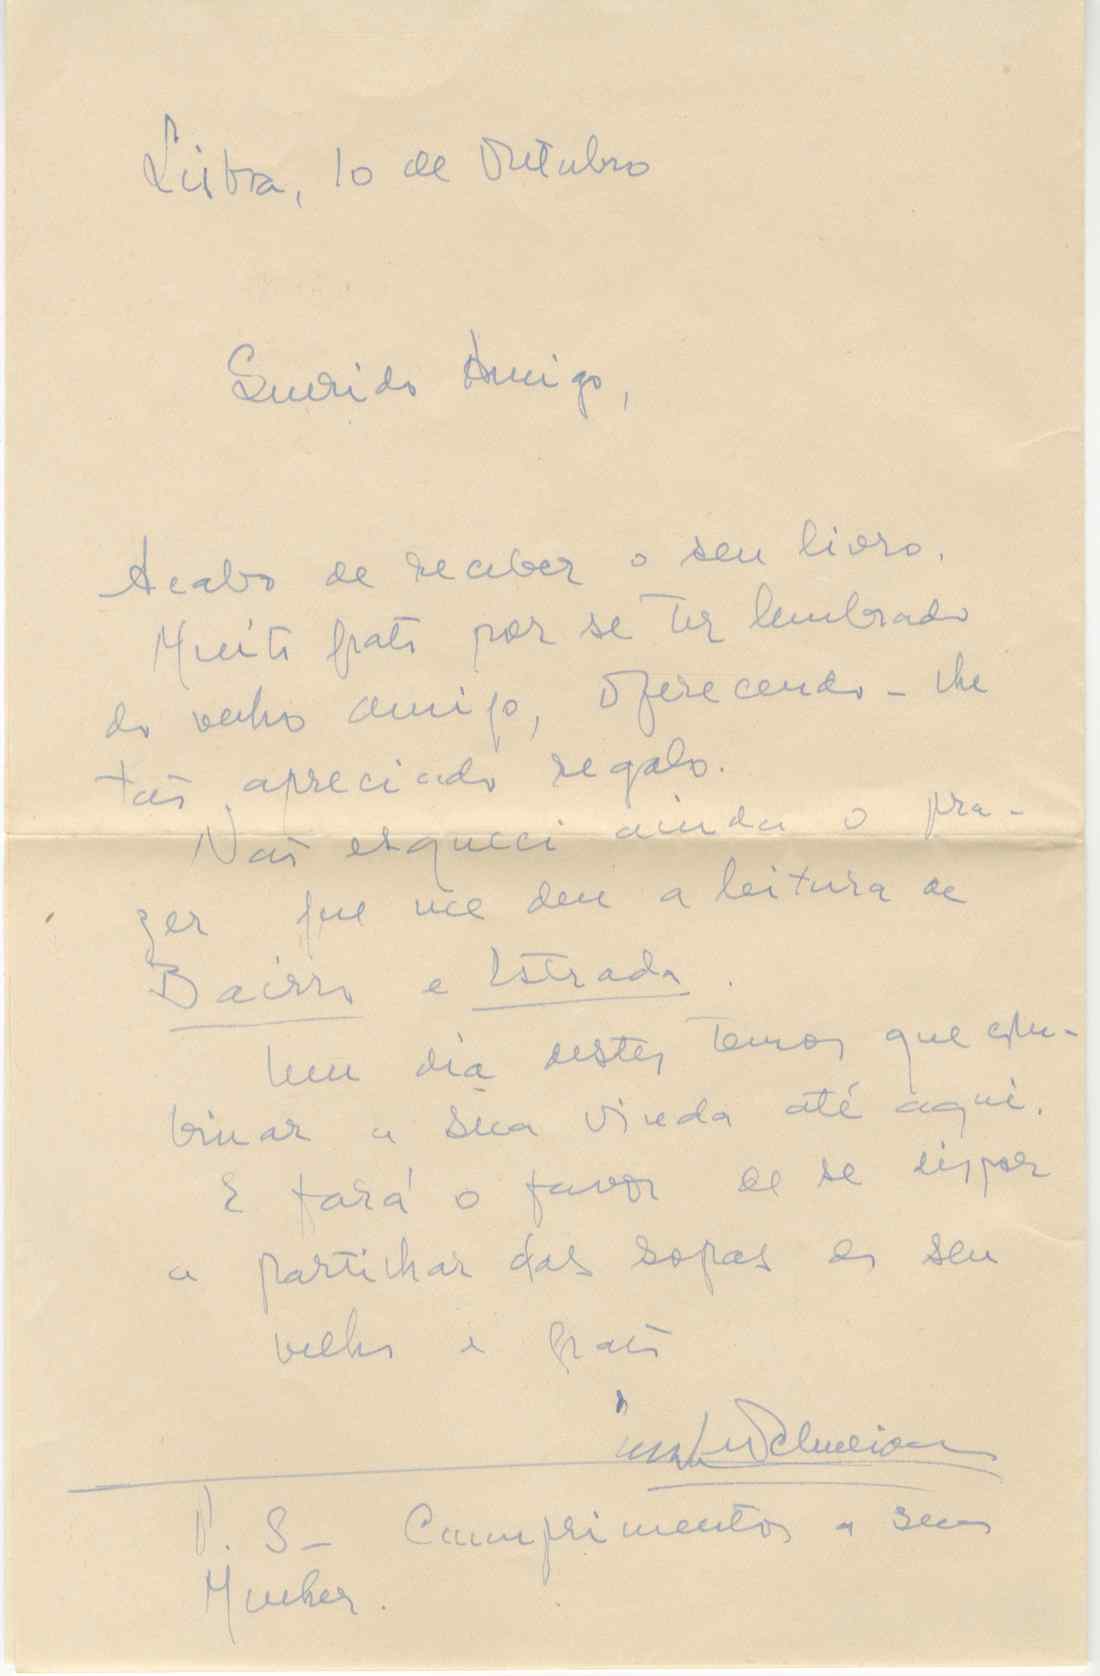 Lisboa, 10 de Outubro
Querido Amigo,
Acabo de receber o seu livro.
Muito grato por se ter lembrado
do velho amigo, oferecendo-lhe
tão apreciado regalo.
Não esqueci ainda o pra-
zer que me deu a leitura de
Bairro e Estrada.
Um dia destes temos que com-
binar a sua vinda até aqui.
E fará o favor de se dispor
a partilhar das sopas do seu
velho e grato
P. S– Cumprimentos a sua
Mulher.